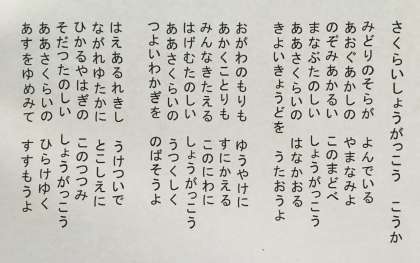 さくらいしょうがっこう　こうか
みどりのそらが　よんでいる
あおぐあかしの　やまなみよ
のぞみあかるい　このまどべ
まなぶたのしい　しょうがっこう
ああさくらいの　はなかおる
きよいきょうどを　うたおうよ
おがわのもりも　ゆうやけに
あかくことりも　すにかえる
みんなきたえる　このにわに
はげむたのしい　しょうがっこう
ああさくらいの　うつくしく
つよいわかぎを　のばそうよ
はえあるれきし　うけついで
ながれゆたかに　とこしえに
ひかるやはぎの　このつつみ
そだつたのしい　しょうがっこう
ああさくらいの　ひらけゆく
あすをゆめみて　すすもうよ